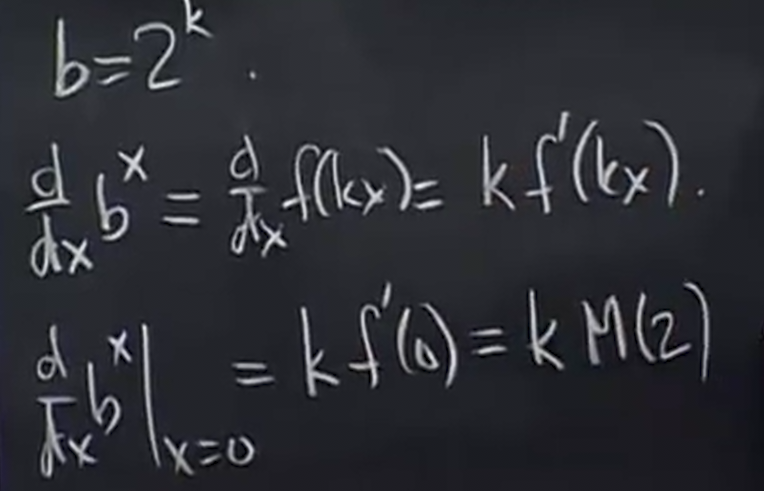 b=2^k.
d/dx b^x = d/dx f(kx) = k f'(kx).
d/dx b^x |_{x=0} = k f'(0) = k M(2)